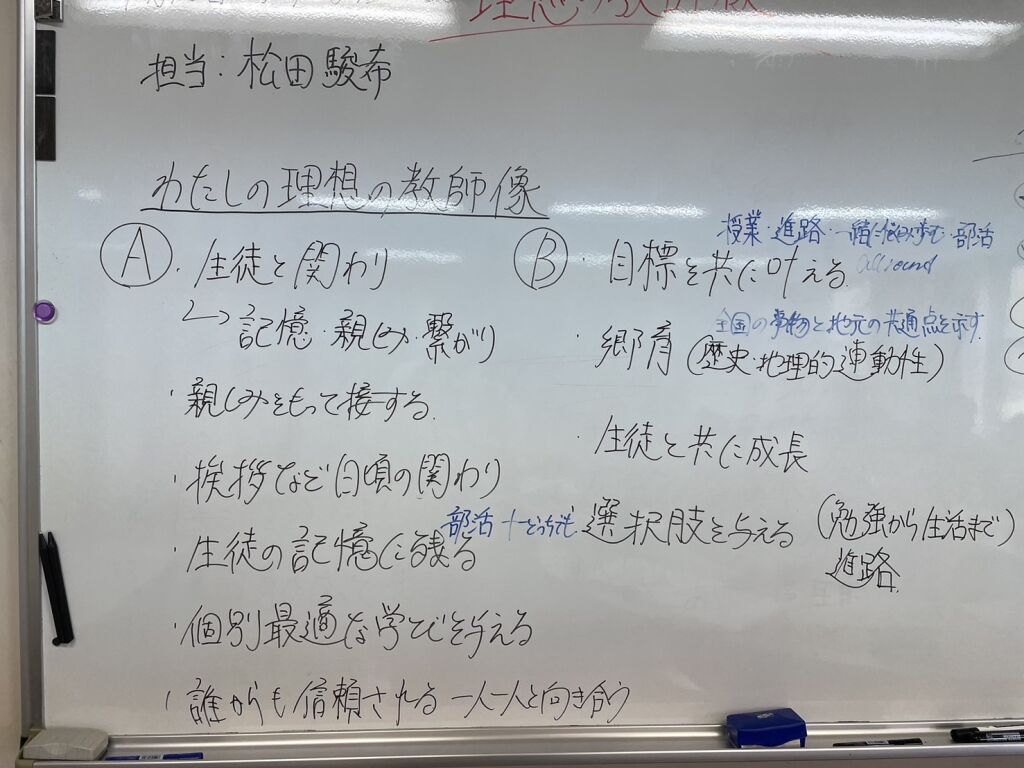 担当：松田駿希
わたしの理想の教師像
Ⓐ・生徒と関わり
↳記憶・親しみ・繋がり
・親しみをもって接する。
・挨拶など日頃の関わり
・生徒の記憶に残る
・個別最適な学びを与える
・誰からも信頼される 一人一人と向き合う
授業・進路・一緒に・部活
Ⓑ・目標を共に叶える。
allround
全国の事物と地元の共通点を示す.
・郷育(歴史・地理的連動性)
・生徒と共に成長
部活 + どっちでも
選択肢を与える (勉強から生活まで)
進路.